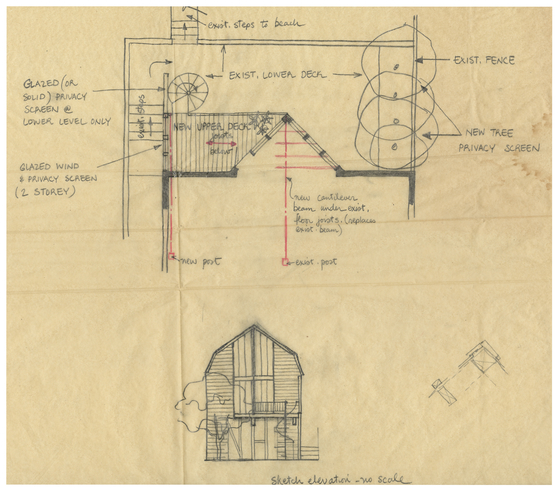 exist. steps to beach
EXIST. LOWER DECK
EXIST. FENCE
GLAZED (OR
SOLID) PRIVACY
SCREEN @
LOWER LEVEL ONLY
exist. steps
NEW UPPER DECK
joists
below
NEW TREE
PRIVACY SCREEN
GLAZED WIND
& PRIVACY SCREEN
(2 STOREY)
new cantilever
beam under exist.
floor joists. (replaces
exist. beam)
new post
exist. post
Sketch elevation - no scale